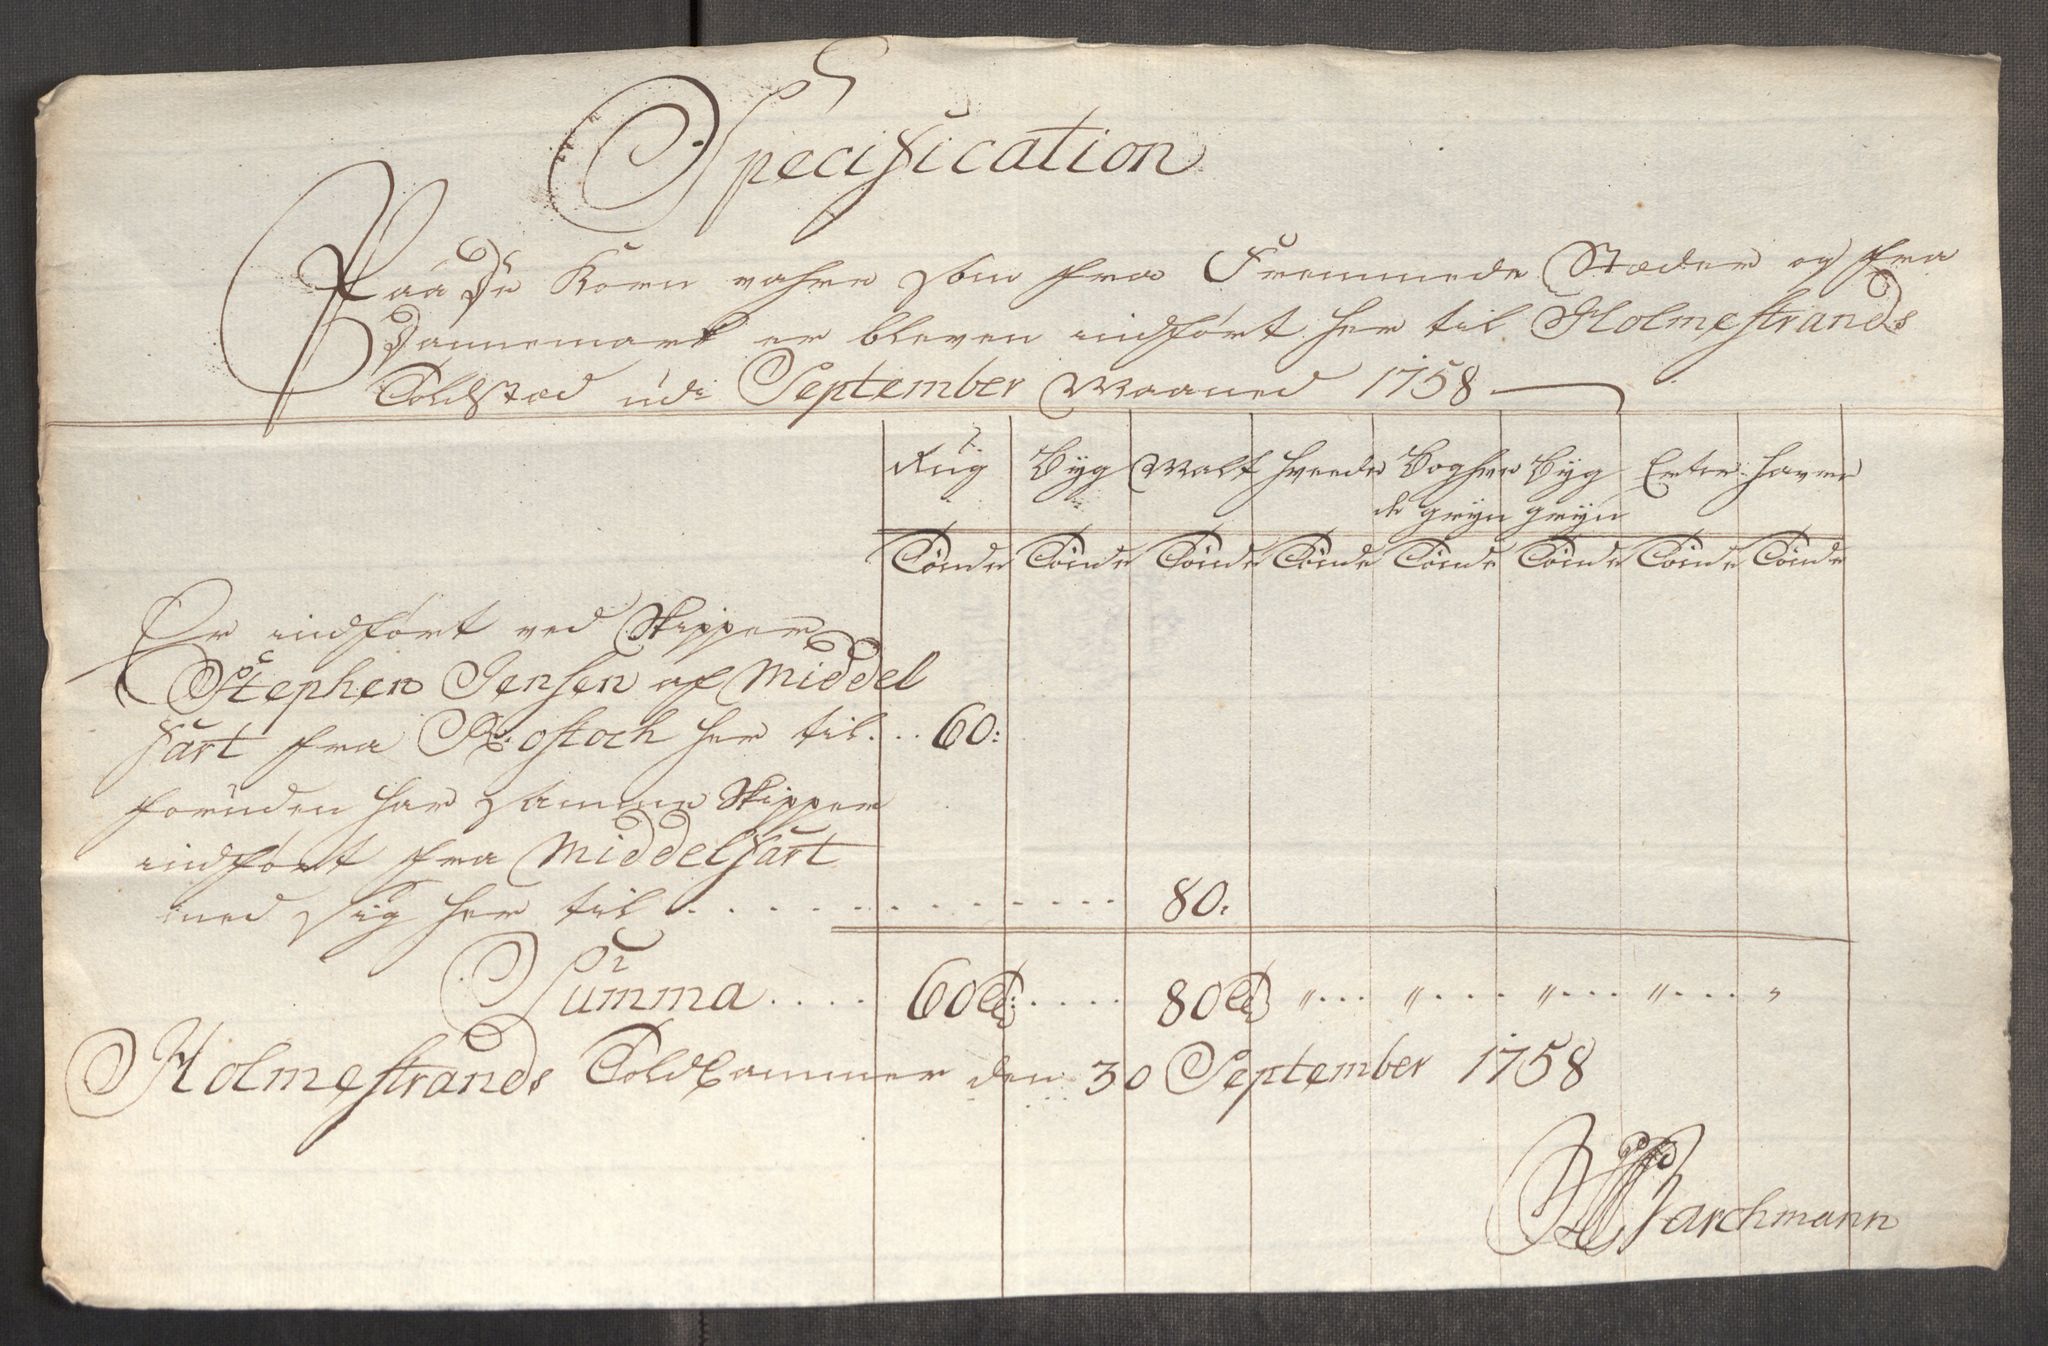 Specification
Paa De Korn vahre som fra Fremmede Stæder og fra
Dannemark er bleven indført her til Holmestrands
Toldstæd udi September Maaned 1758
Rug Byg Malt Hvede Boghve Byg Erter Haver
de gryn gryn
Tønde Tønde Tønde Tønde Tønde Tønde Tønde Tønde
Er indført ved Skipper
Stephen Jensen af Middel
fart fra Rostoch her til... 60:
foruden har Samme Skipper
indført fra Middelfart
med sig her til . . . . . . . . . . . 80:
Summa..... 60 Td: .... 80 Td " ... " ... " ... " ... "
Holmestrands Toldkammer den 30 September 1758
Barchmann